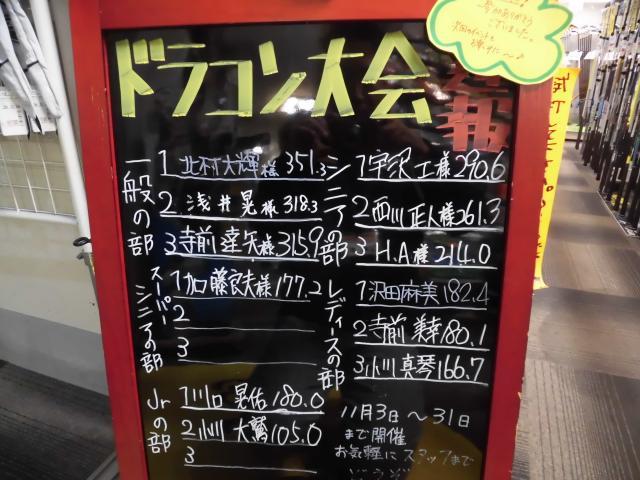 ドラコン大会
速報
一般の部
1 北村大輝様 351.3
2 浅井 晃様 318.3
3 寺前 達矢様 315.9
スーパーシニアの部
1 加藤良夫様 177.2
2
3
Jrの部
1 川口 晃佑 180.0
2 小川 大鷲 105.0
3
シニアの部
1 宇沢 工様 290.6
2 西川 正人様 261.3
3 H.A様 214.0
レディースの部
1 沢田麻美 182.4
2 寺前 美幸 180.1
3 小川 真琴 166.7
11月3日〜31日
まで開催
お気軽にスタッフまで